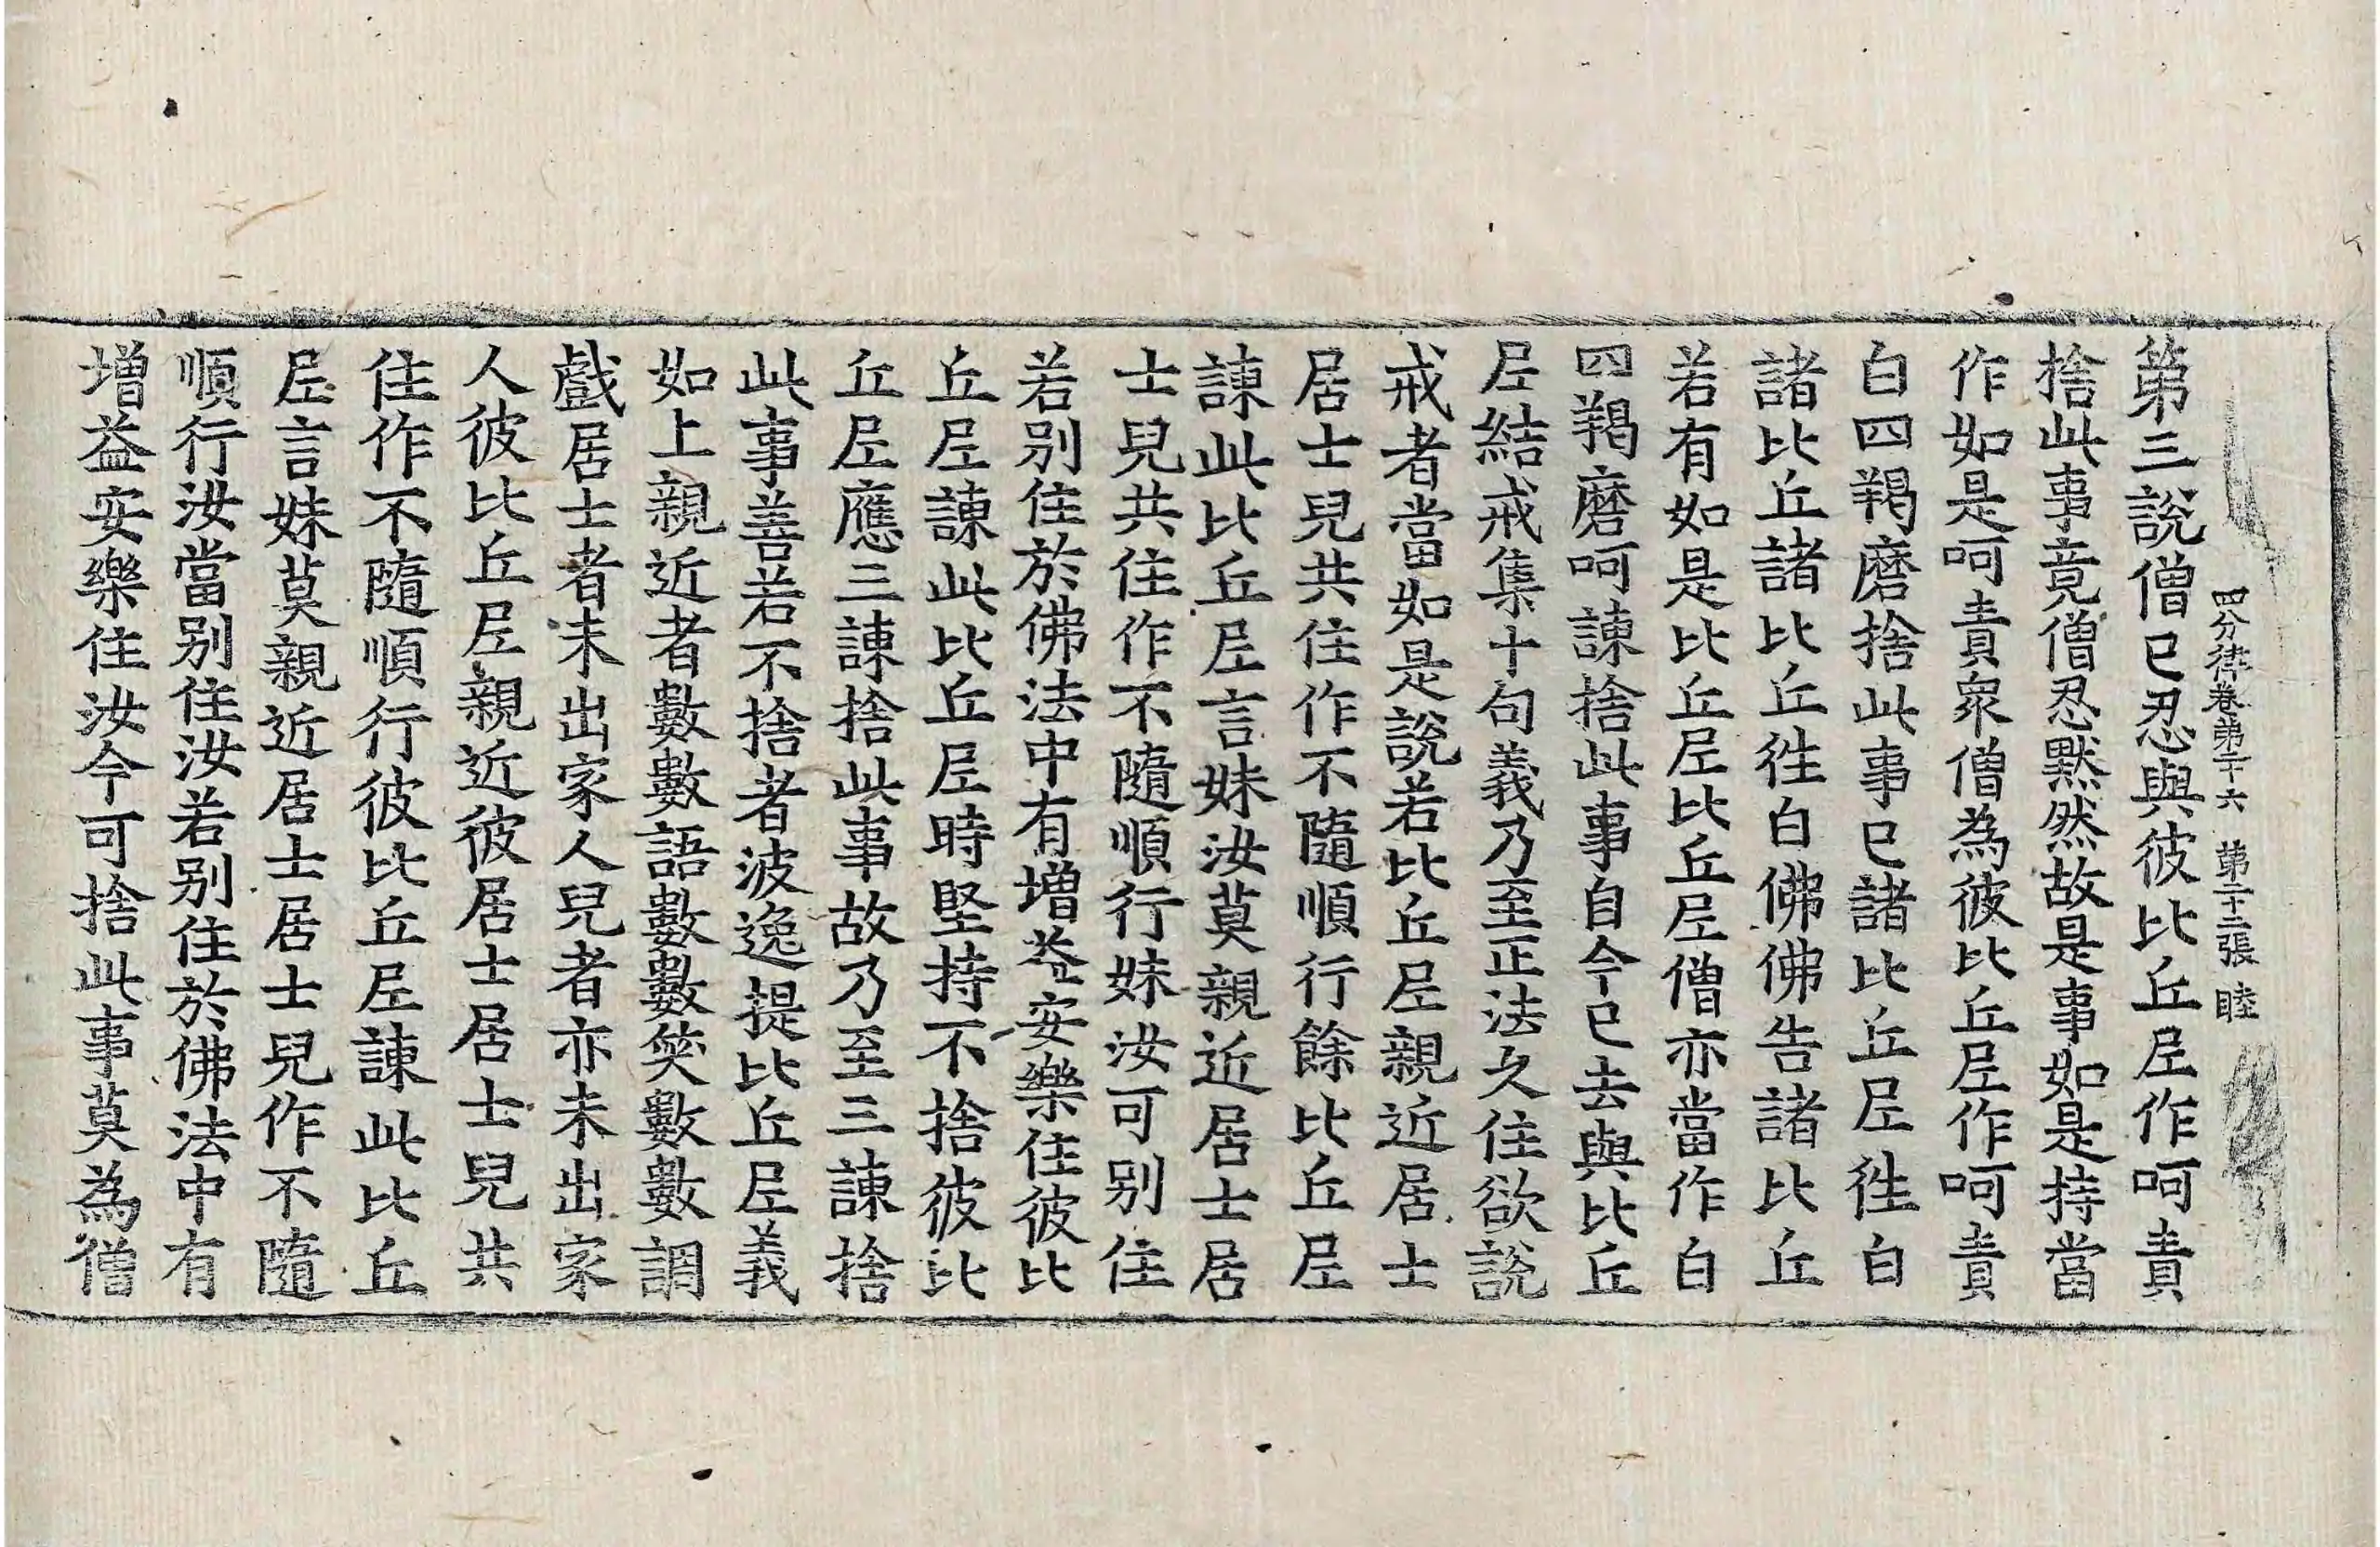 四分律卷第二十六 第二十二張 睦
第三說僧已忍與彼比丘尼作呵責
捨此事竟僧忍默然故是事如是持當
作如是呵責衆僧為彼比丘尼作呵責
白四羯磨捨此事已諸比丘尼徃白
諸比丘諸比丘徃白佛佛告諸比丘
若有如是比丘尼比丘尼僧亦當作白
四羯磨呵諫捨此事自今已去與比丘
尼結戒集十句義乃至正法久住欲說
戒者當如是說若比丘尼親近居士
居士兒共住作不隨順行餘比丘尼
諫此比丘尼言妹汝莫親近居士居
士兒共住作不隨順行妹汝可別住
若別住於佛法中有增益安樂住彼比
丘尼諫此比丘尼時堅持不捨彼比
丘尼應三諫捨此事故乃至三諫捨
此事善若不捨者波逸提比丘尼義
如上親近者數數語數數笑數數調
戲居士者未出家人兒者亦未出家
人彼比丘尼親近彼居士居士兒共
住作不隨順行彼比丘尼諫此比丘
尼言妹莫親近居士居士兒作不隨
順行汝當別住汝若別住於佛法中有
增益安樂住汝今可捨此事莫為僧